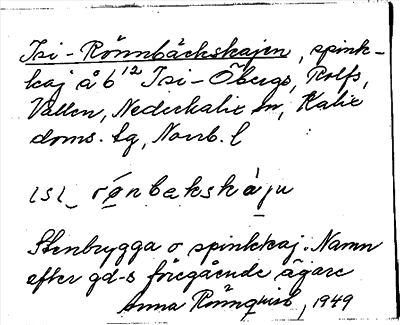 Isi-Rönnbäckskajen, spink-
kaj å 6¹² Isi-Öbergs, Rolfs,
Vallen, Nederkalix sn, Kalix
doms. tg, Norrb. l
ɩsɩ_ rønbakskàju
Stenbrygga o spinkkaj. Namn
efter gd-s föregående ägare
Anna Rönnquist, 1949